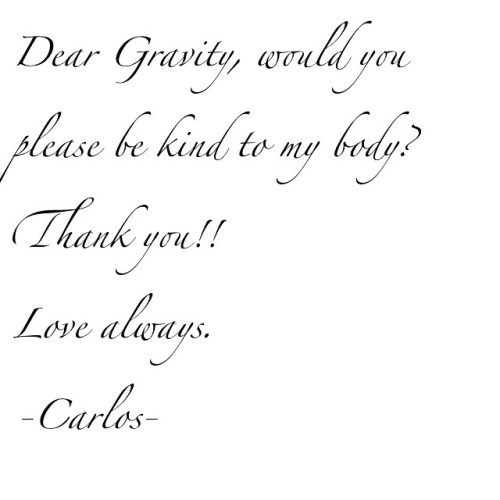 Dear Gravity, would you
please be kind to my body?
Thank you!!
Love always.
-Carlos-